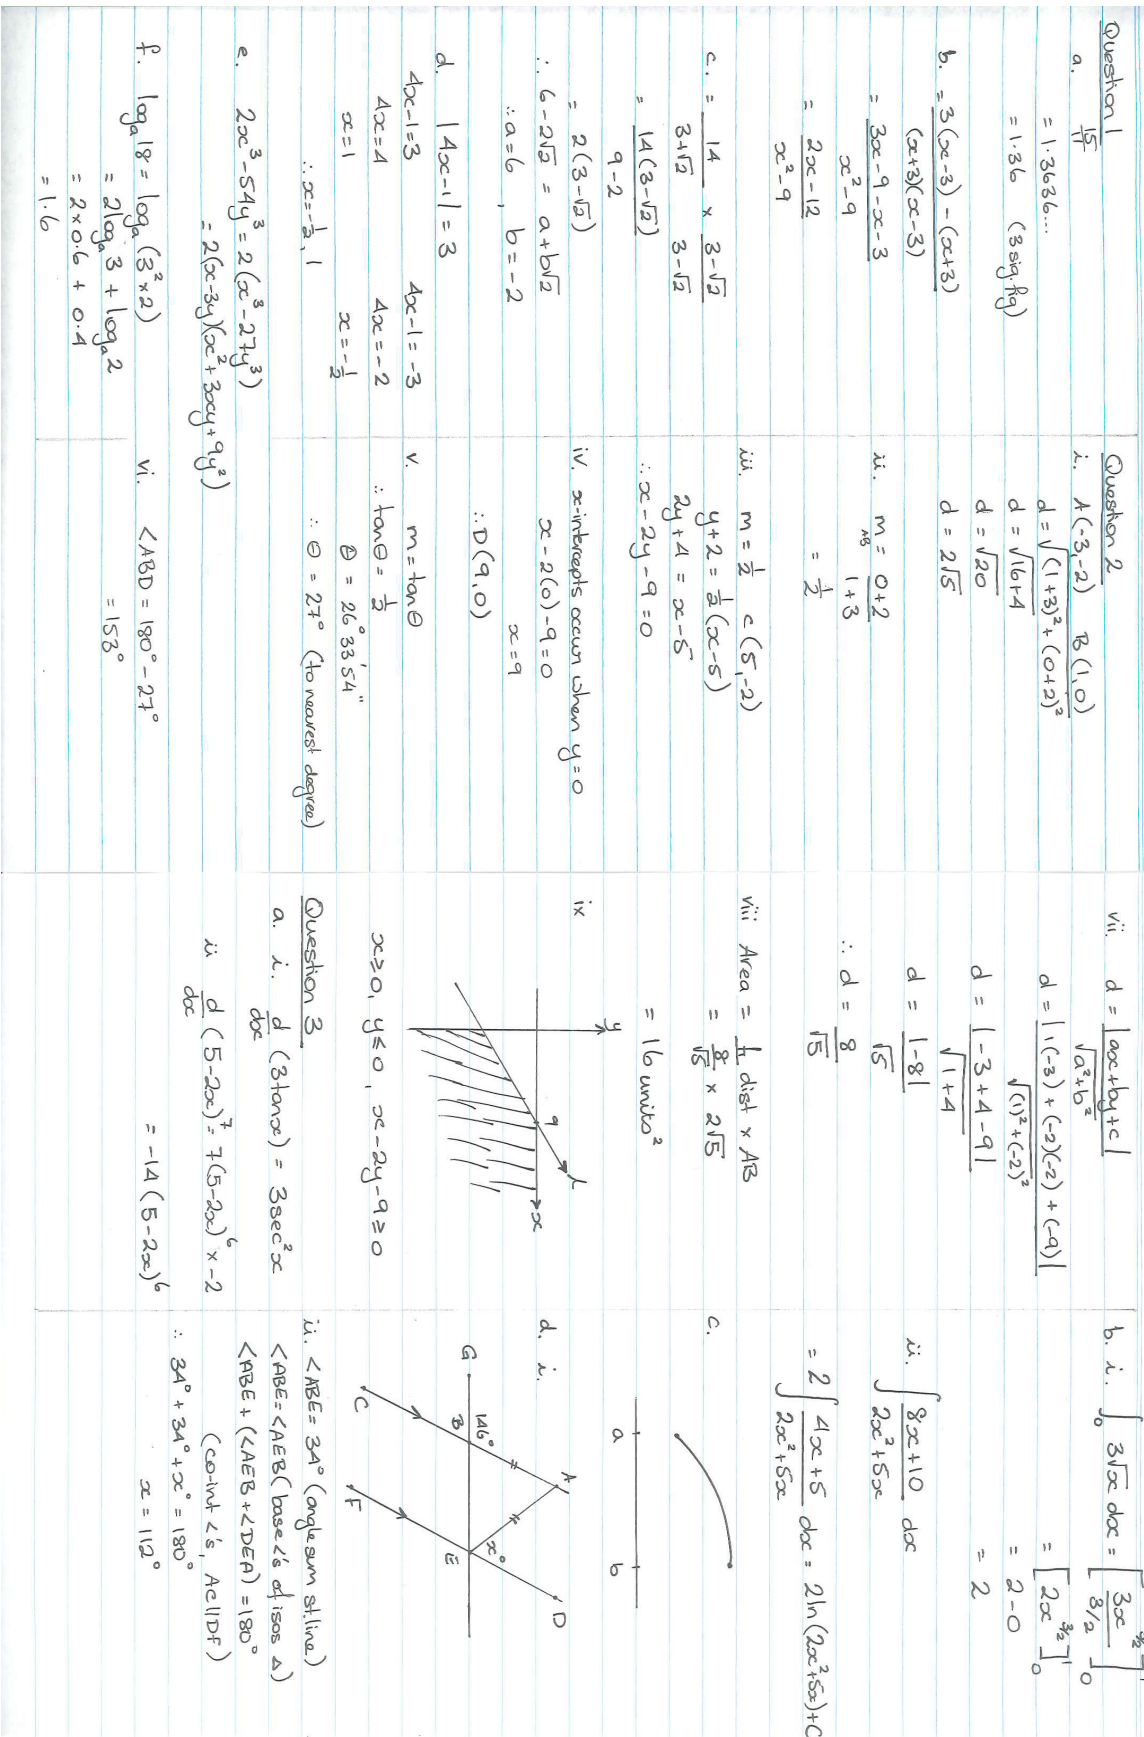 Question 1
a. 15/11
= 1.3636...
= 1.36 (3 sig. fig)
b. = 3(x-3) - (x+3)
(x+3)(x-3)
= 3x-9-x-3
x²-9
= 2x-12
x²-9
c. = 14/(3+√2) × (3-√2)/(3-√2)
= 14(3-√2)
9-2
= 2(3-√2)
∴ 6-2√2 = a+b√2
∴ a=6, b=-2
d. |4x-1| = 3
4x-1=3 4x-1=-3
4x=4 4x=-2
x=1 x=-1/2
∴ x=-1/2, 1
e. 2x³-54y³ = 2(x³-27y³)
= 2(x-3y)(x²+3xy+9y²)
f. logₐ18 = logₐ(3²×2)
= 2logₐ3 + logₐ2
= 2×0.6 + 0.4
= 1.6
Question 2
i. A(-3,-2) B(1,0)
d = √((1+3)²+(0+2)²)
d = √(16+4)
d = √20
d = 2√5
ii. m_AB = (0+2)/(1+3)
= 1/2
iii. m = 1/2 C(5,-2)
y+2 = 1/2(x-5)
2y+4 = x-5
∴ x-2y-9=0
iv. x-intercepts occur when y=0
x-2(0)-9=0
x=9
∴ D(9,0)
v. m = tanθ
∴ tanθ = 1/2
θ = 26°33'54"
∴ θ = 27° (to nearest degree)
vi. <ABD = 180°-27°
= 153°
vii. d = |ax+by+c|/√(a²+b²)
d = |1(-3)+(-2)(-2)+(-9)|
√((1)²+(-2)²)
d = |-3+4-9|
√(1+4)
d = |-8|
√5
∴ d = 8/√5
viii Area = ⊥ dist × AB
= 8/√5 × 2√5
= 16 units²
ix
y
9
l
x
x≥0, y≤0, x-2y-9≥0
Question 3
a. i. d/dx (3tanx) = 3sec²x
ii d/dx (5-2x)⁷ = 7(5-2x)⁶ × -2
= -14(5-2x)⁶
b. i. ∫₀ 3√x dx = [3x^(3/2) / (3/2)]₀¹
= [2x^(3/2)]₀¹
= 2-0
= 2
ii. ∫ (8x+10)/(2x²+5x) dx
= 2∫ (4x+5)/(2x²+5x) dx = 2ln(2x²+5x)+C
c.
a b
d. i.
A
D
G
146°
B
x°
E
C
F
ii. <ABE = 34° (angle sum st. line)
<ABE = <AEB (base <'s of isos Δ)
<ABE + (<AEB + <DEA) = 180°
(co-int <'s, AC||DF)
∴ 34° + 34° + x° = 180°
x = 112°